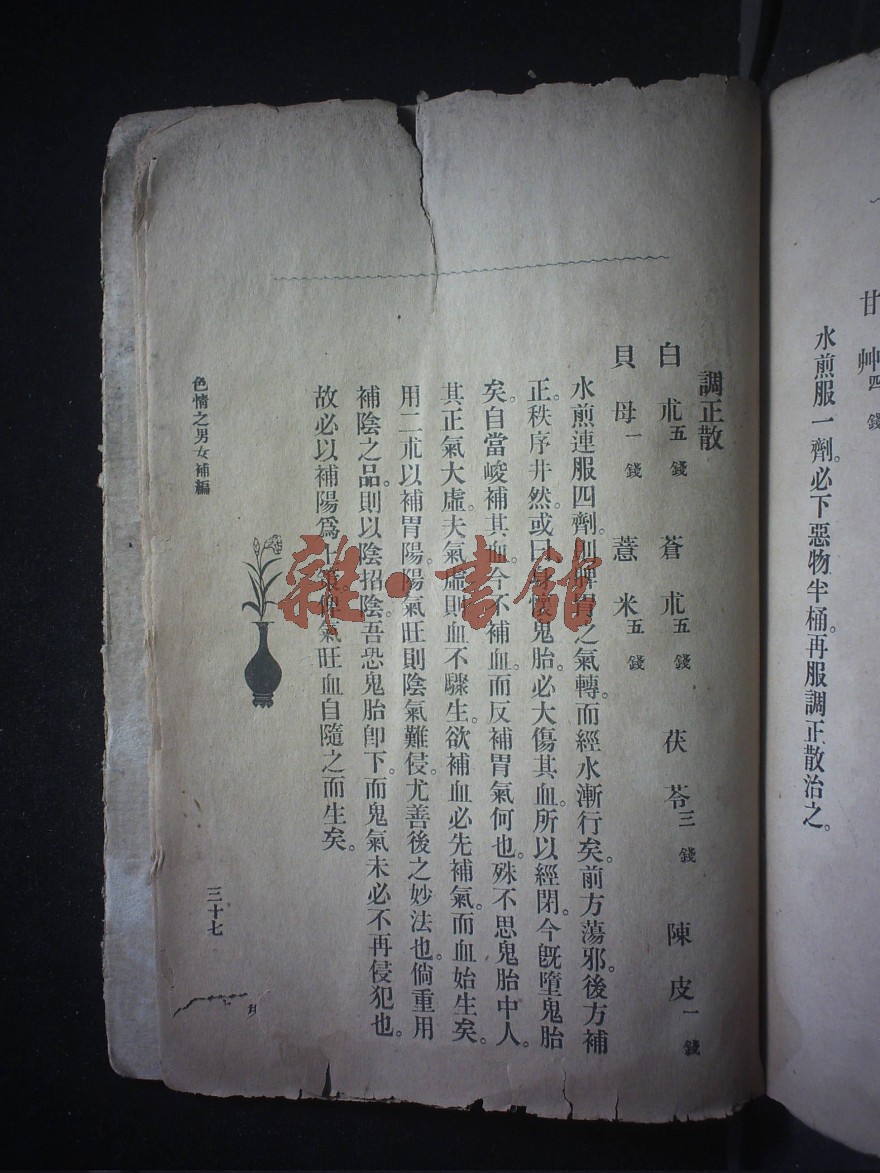 甘艸四錢
水煎服一劑。必下惡物半桶。再服調正散治之。
調正散
白朮五錢 蒼朮五錢 茯苓三錢 陳皮一錢
貝母一錢 薏米五錢
水煎連服四劑。則脾胃之氣轉。而經水漸行矣。前方蕩邪。後方補
正。秩序井然。或曰身懷鬼胎。必大傷其血。所以經閉。今旣墮鬼胎
矣。自當峻補其血。今不補血。而反補胃氣何也。殊不思鬼胎中人。
其正氣大虛。夫氣虛則血不驟生。欲補血必先補氣。而血始生矣。
用二朮以補胃陽。陽氣旺則陰氣難侵。尤善後之妙法也。倘重用
補陰之品。則以陰招陰。吾恐鬼胎卽下。而鬼氣未必不再侵犯也。
故必以補陽爲上策。氣旺血自隨之而生矣。
色情之男女補編
三十七
雜·書館